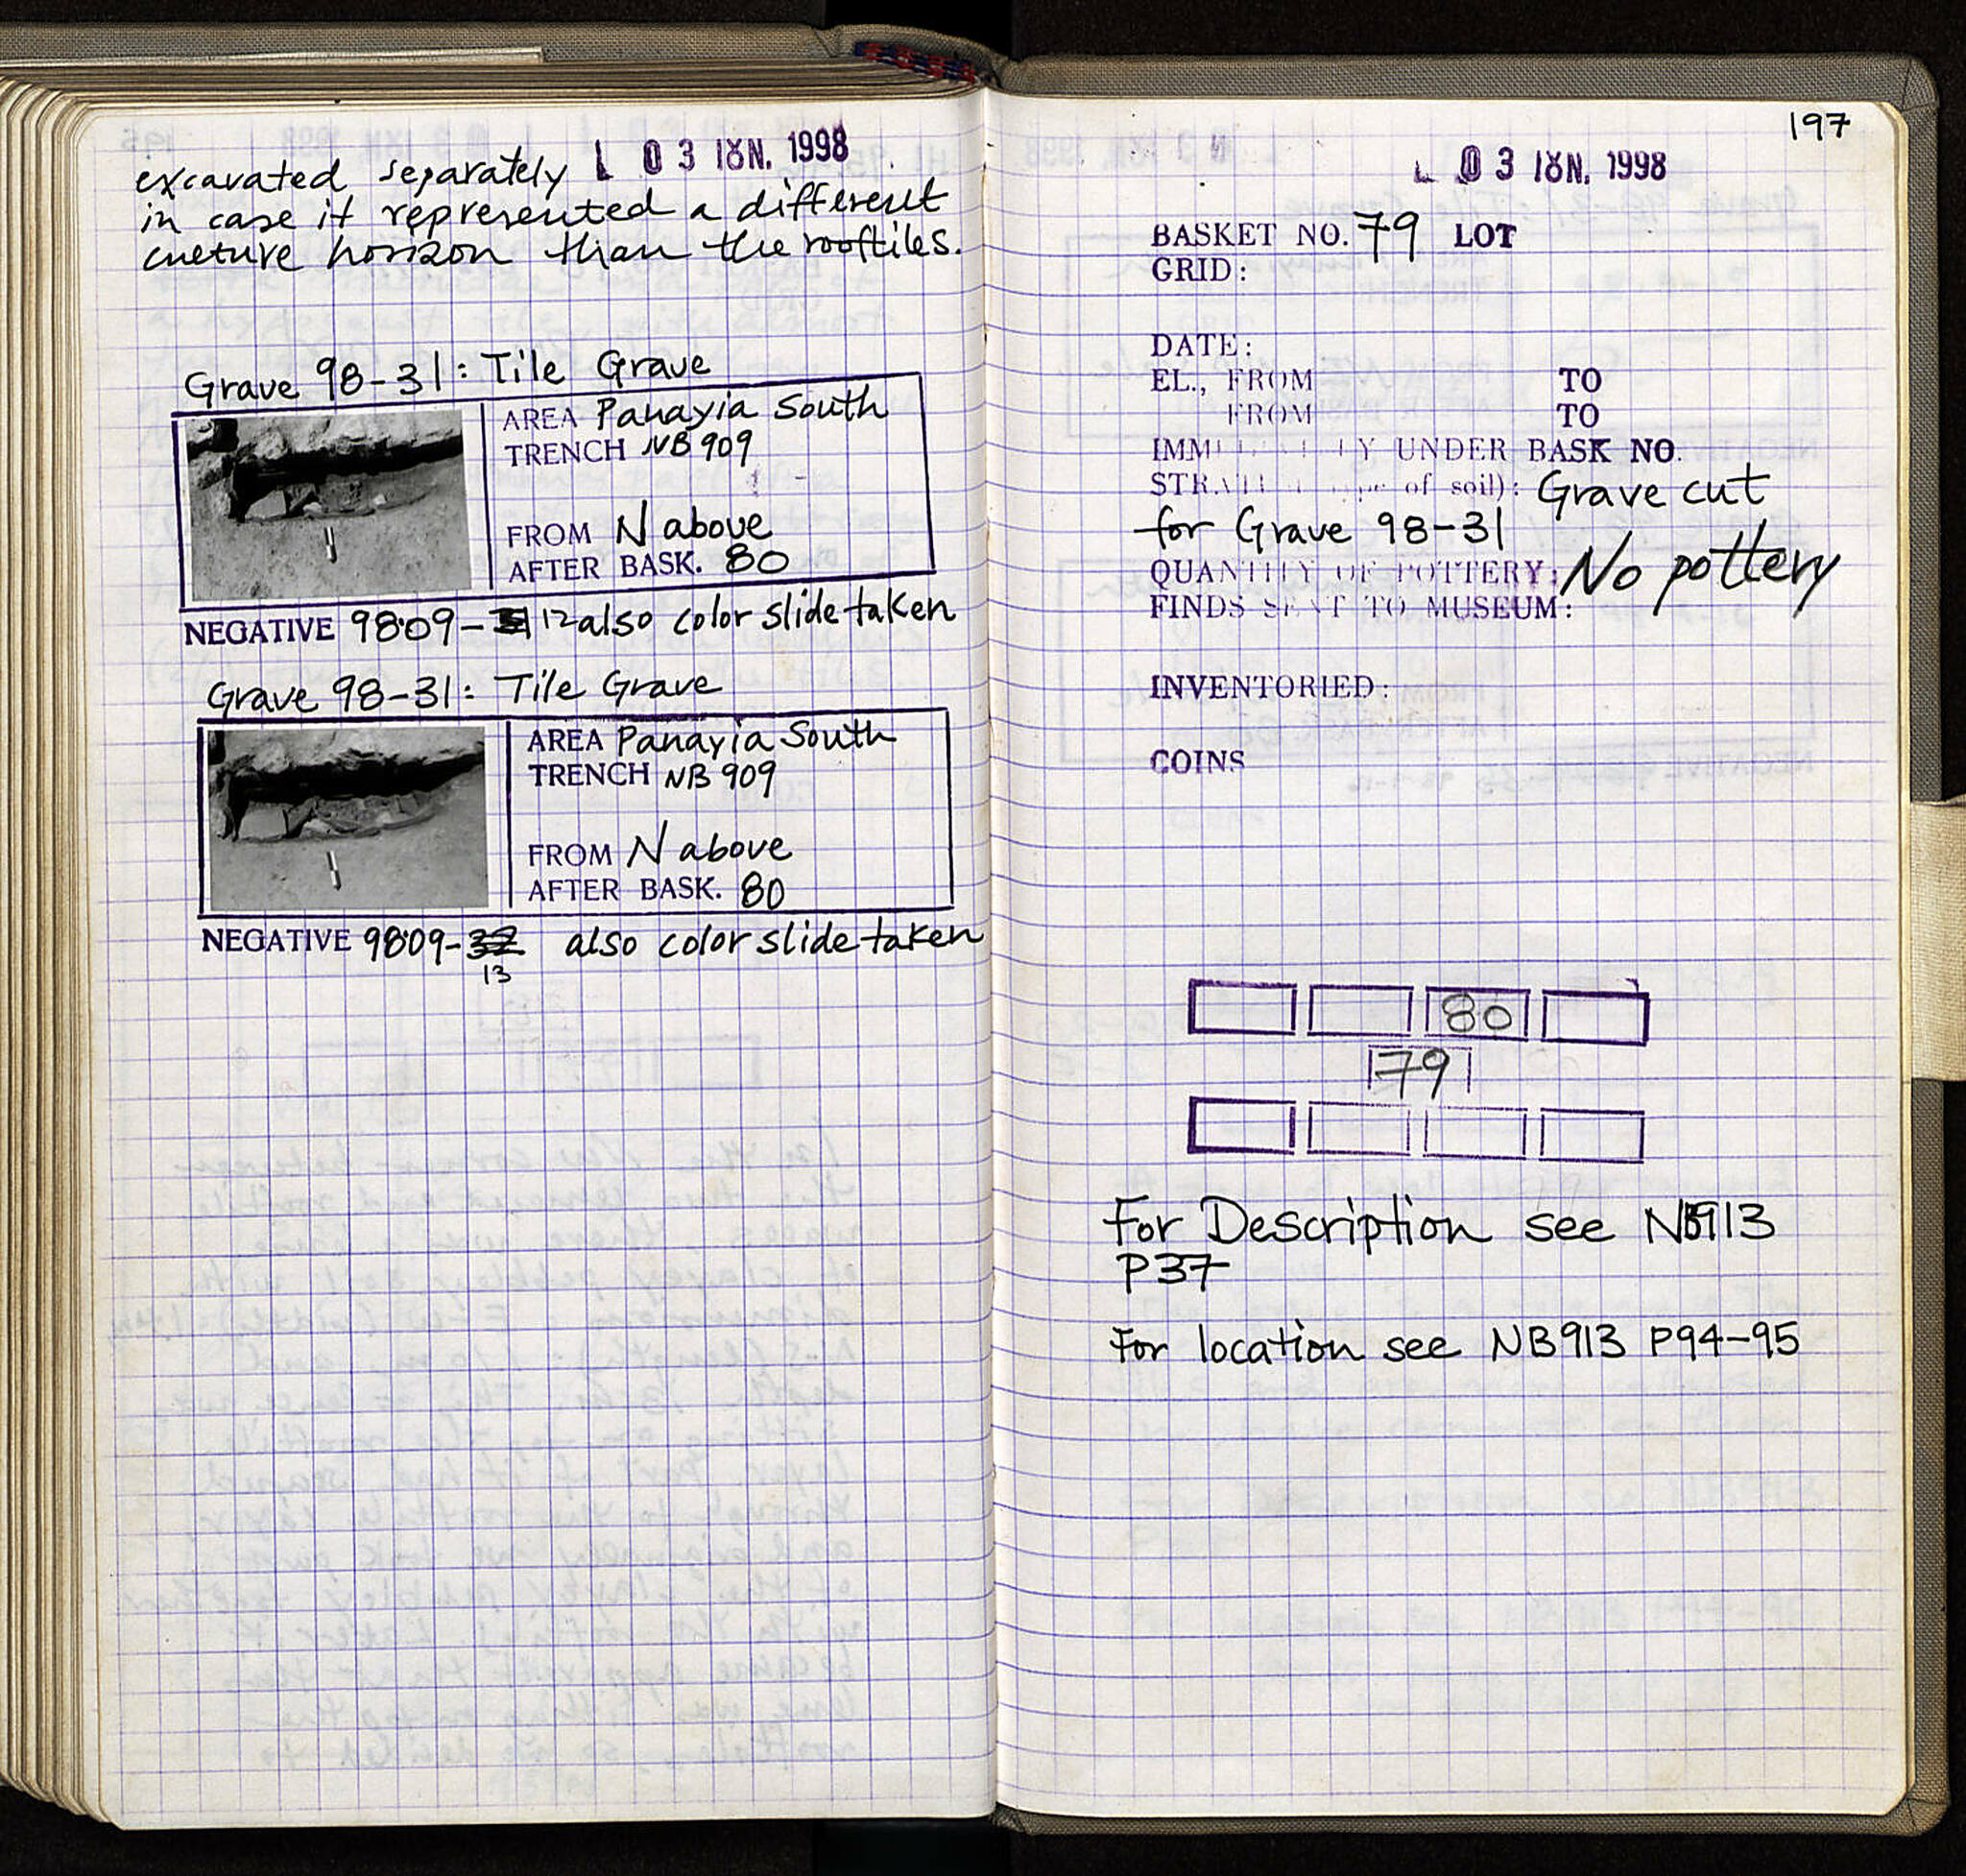 L 03 ΙΟΥΝ. 1998
excavated separately
in case it represented a different
culture horizon than the rooftiles.
Grave 98-31: Tile Grave
AREA Panayia South
TRENCH NB 909
FROM N above
AFTER BASK. 80
NEGATIVE 98-09- 12 also color slide taken
Grave 98-31: Tile Grave
AREA Panayia South
TRENCH NB 909
FROM N above
AFTER BASK. 80
NEGATIVE 98-09-32 also color slide taken
13
197
L 03 ΙΟΥΝ. 1998
BASKET NO. 79 LOT
GRID:
DATE:
EL., FROM TO
FROM TO
IMMEDIATELY UNDER BASK NO.
STRATUM (type of soil): Grave cut
for Grave 98-31
QUANTITY OF POTTERY: No pottery
FINDS SENT TO MUSEUM:
INVENTORIED:
COINS
80
79
For Description see NB913
P37
For location see NB913 P94-95